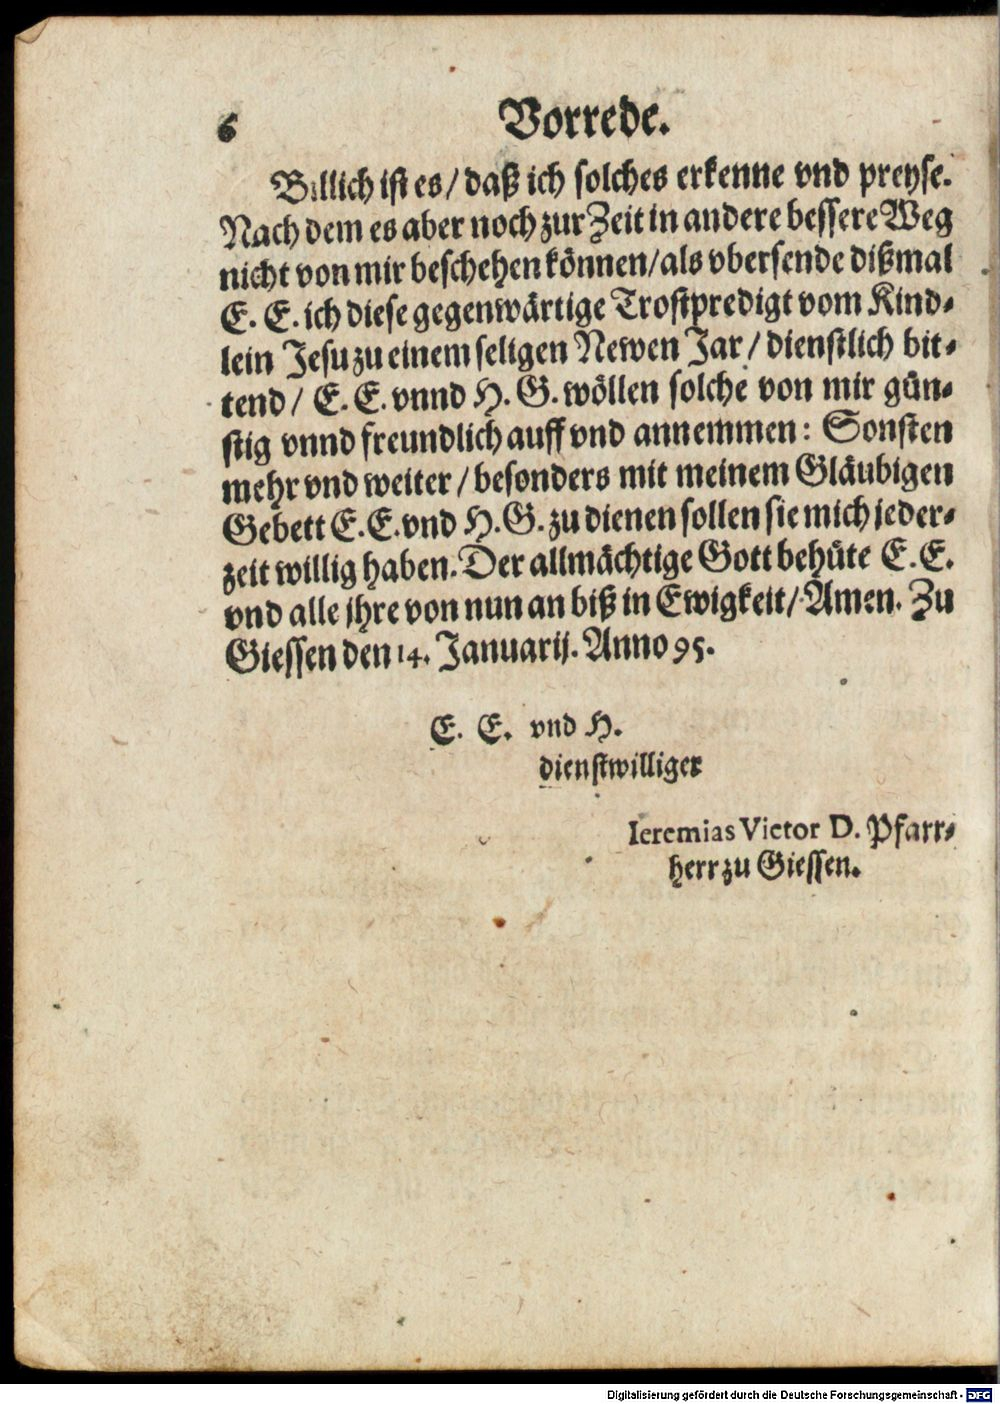 6 Vorrede.
Billich ist es/ daß ich solches erkenne vnd preyse.
Nach dem es aber noch zur Zeit in andere bessere Weg
nicht von mir beschehen können/ als vbersende dißmal
E. E. ich diese gegenwärtige Trostpredigt vom Kind-
lein Jesu zu einem seligen Newen Jar/ dienstlich bit-
tend/ E. E. vnnd H. G. wöllen solche von mir gün-
stig vnnd freundlich auff vnd annemmen: Sonsten
mehr vnd weiter/ besonders mit meinem Gläubigen
Gebett E. E. vnd H. G. zu dienen sollen sie mich jeder-
zeit willig haben. Der allmächtige Gott behüte E. E.
vnd alle jhre von nun an biß in Ewigkeit/ Amen. Zu
Giessen den 14. Januarij. Anno 95.
E. E. vnd H.
dienstwilliger
Ieremias Victor D. Pfarr-
herr zu Giessen.
Digitalisierung gefördert durch die Deutsche Forschungsgemeinschaft - DFG